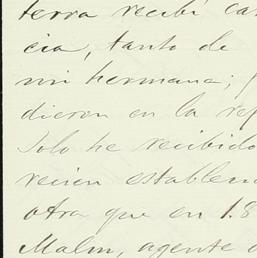 terra recibí car
cia, tanto de
mi hermana;
dieron en la ref
Solo he recibido
recien establec
otra que en 18
Malm, agente